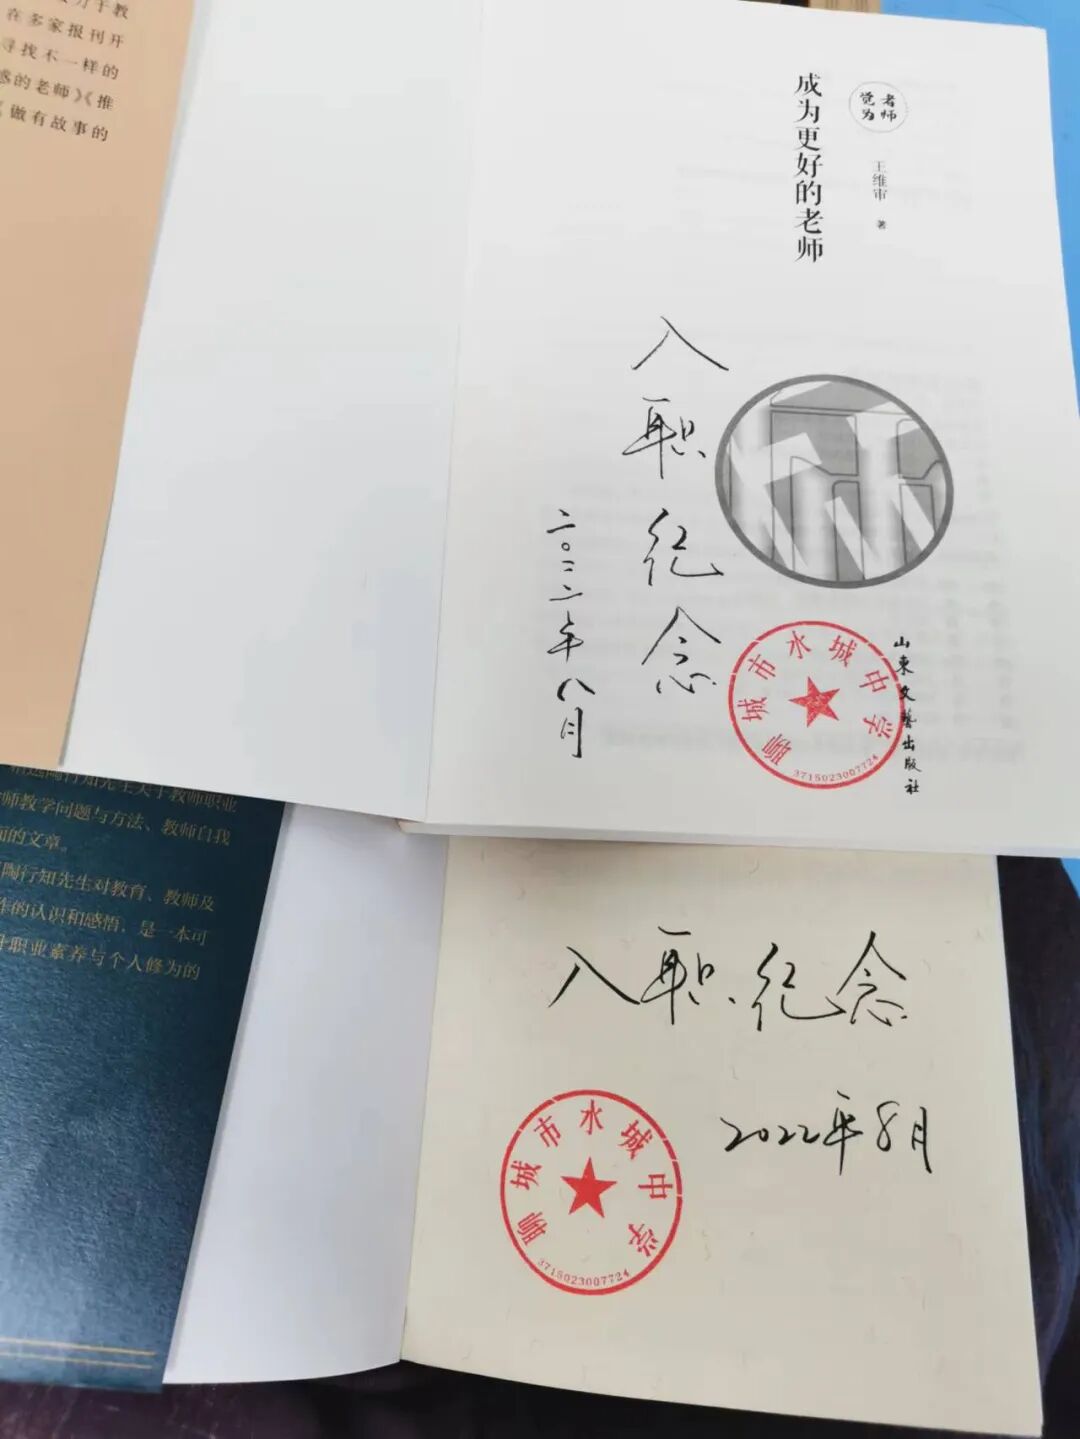 在多家报刊开
寻找不一样的
的老师》《推
《做有故事的
觉者
为师
成为更好的老师
王维审 著
入职纪念
二〇二二年八月
聊城市水城中学
3715023007724
山东文艺出版社
陶行知先生关于教师职业
师教学问题与方法、教师自我
面的文章。
陶行知先生对教育、教师及
作的认识和感悟，是一本可
升职业素养与个人修为的
入职纪念
2022年8月
聊城市水城中学
3715023007724